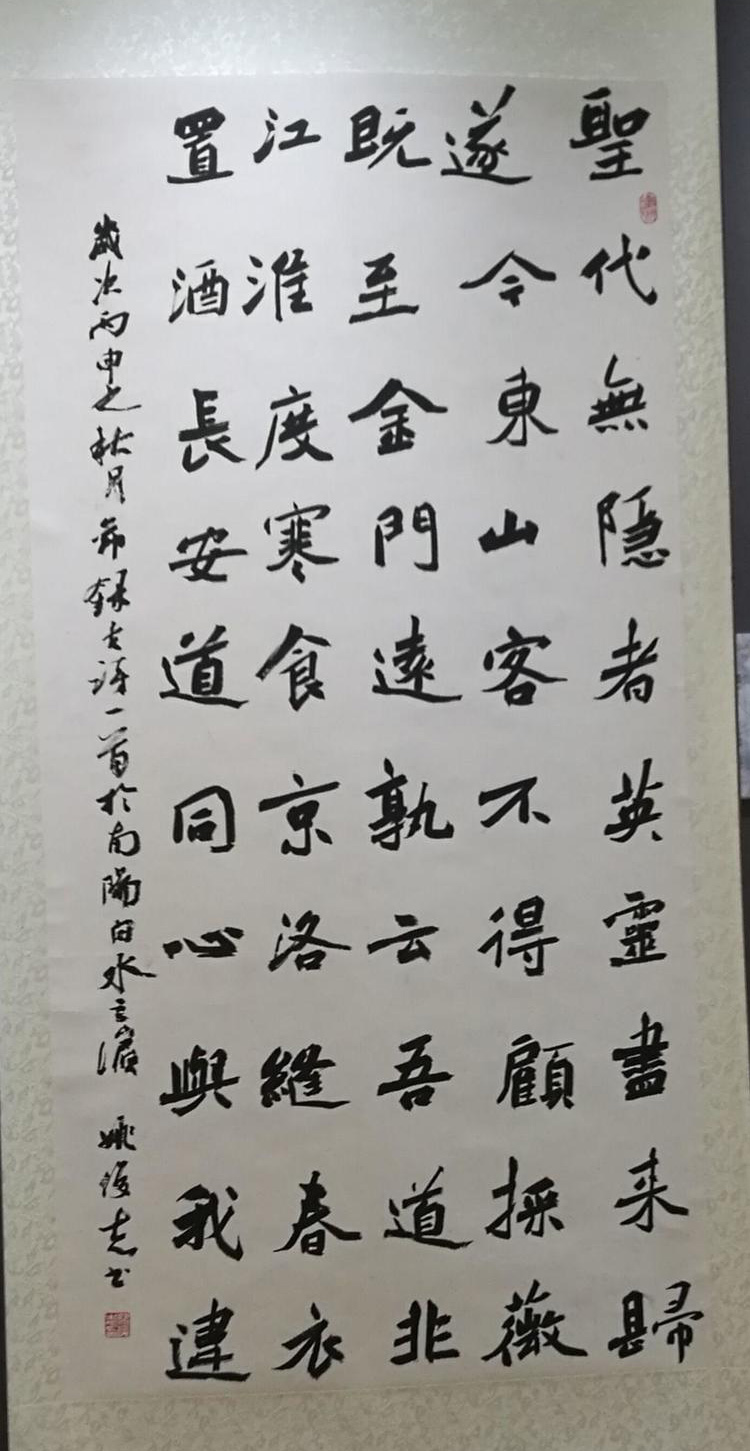 聖代無隱者英靈盡来歸
遂令東山客不得顧採薇
既至金門遠孰云吾道非
江淮度寒食京洛縫春衣
置酒長安道同心與我違
歲次丙申之秋月節録古詩一首於南陽白水之濱 姚俊志书